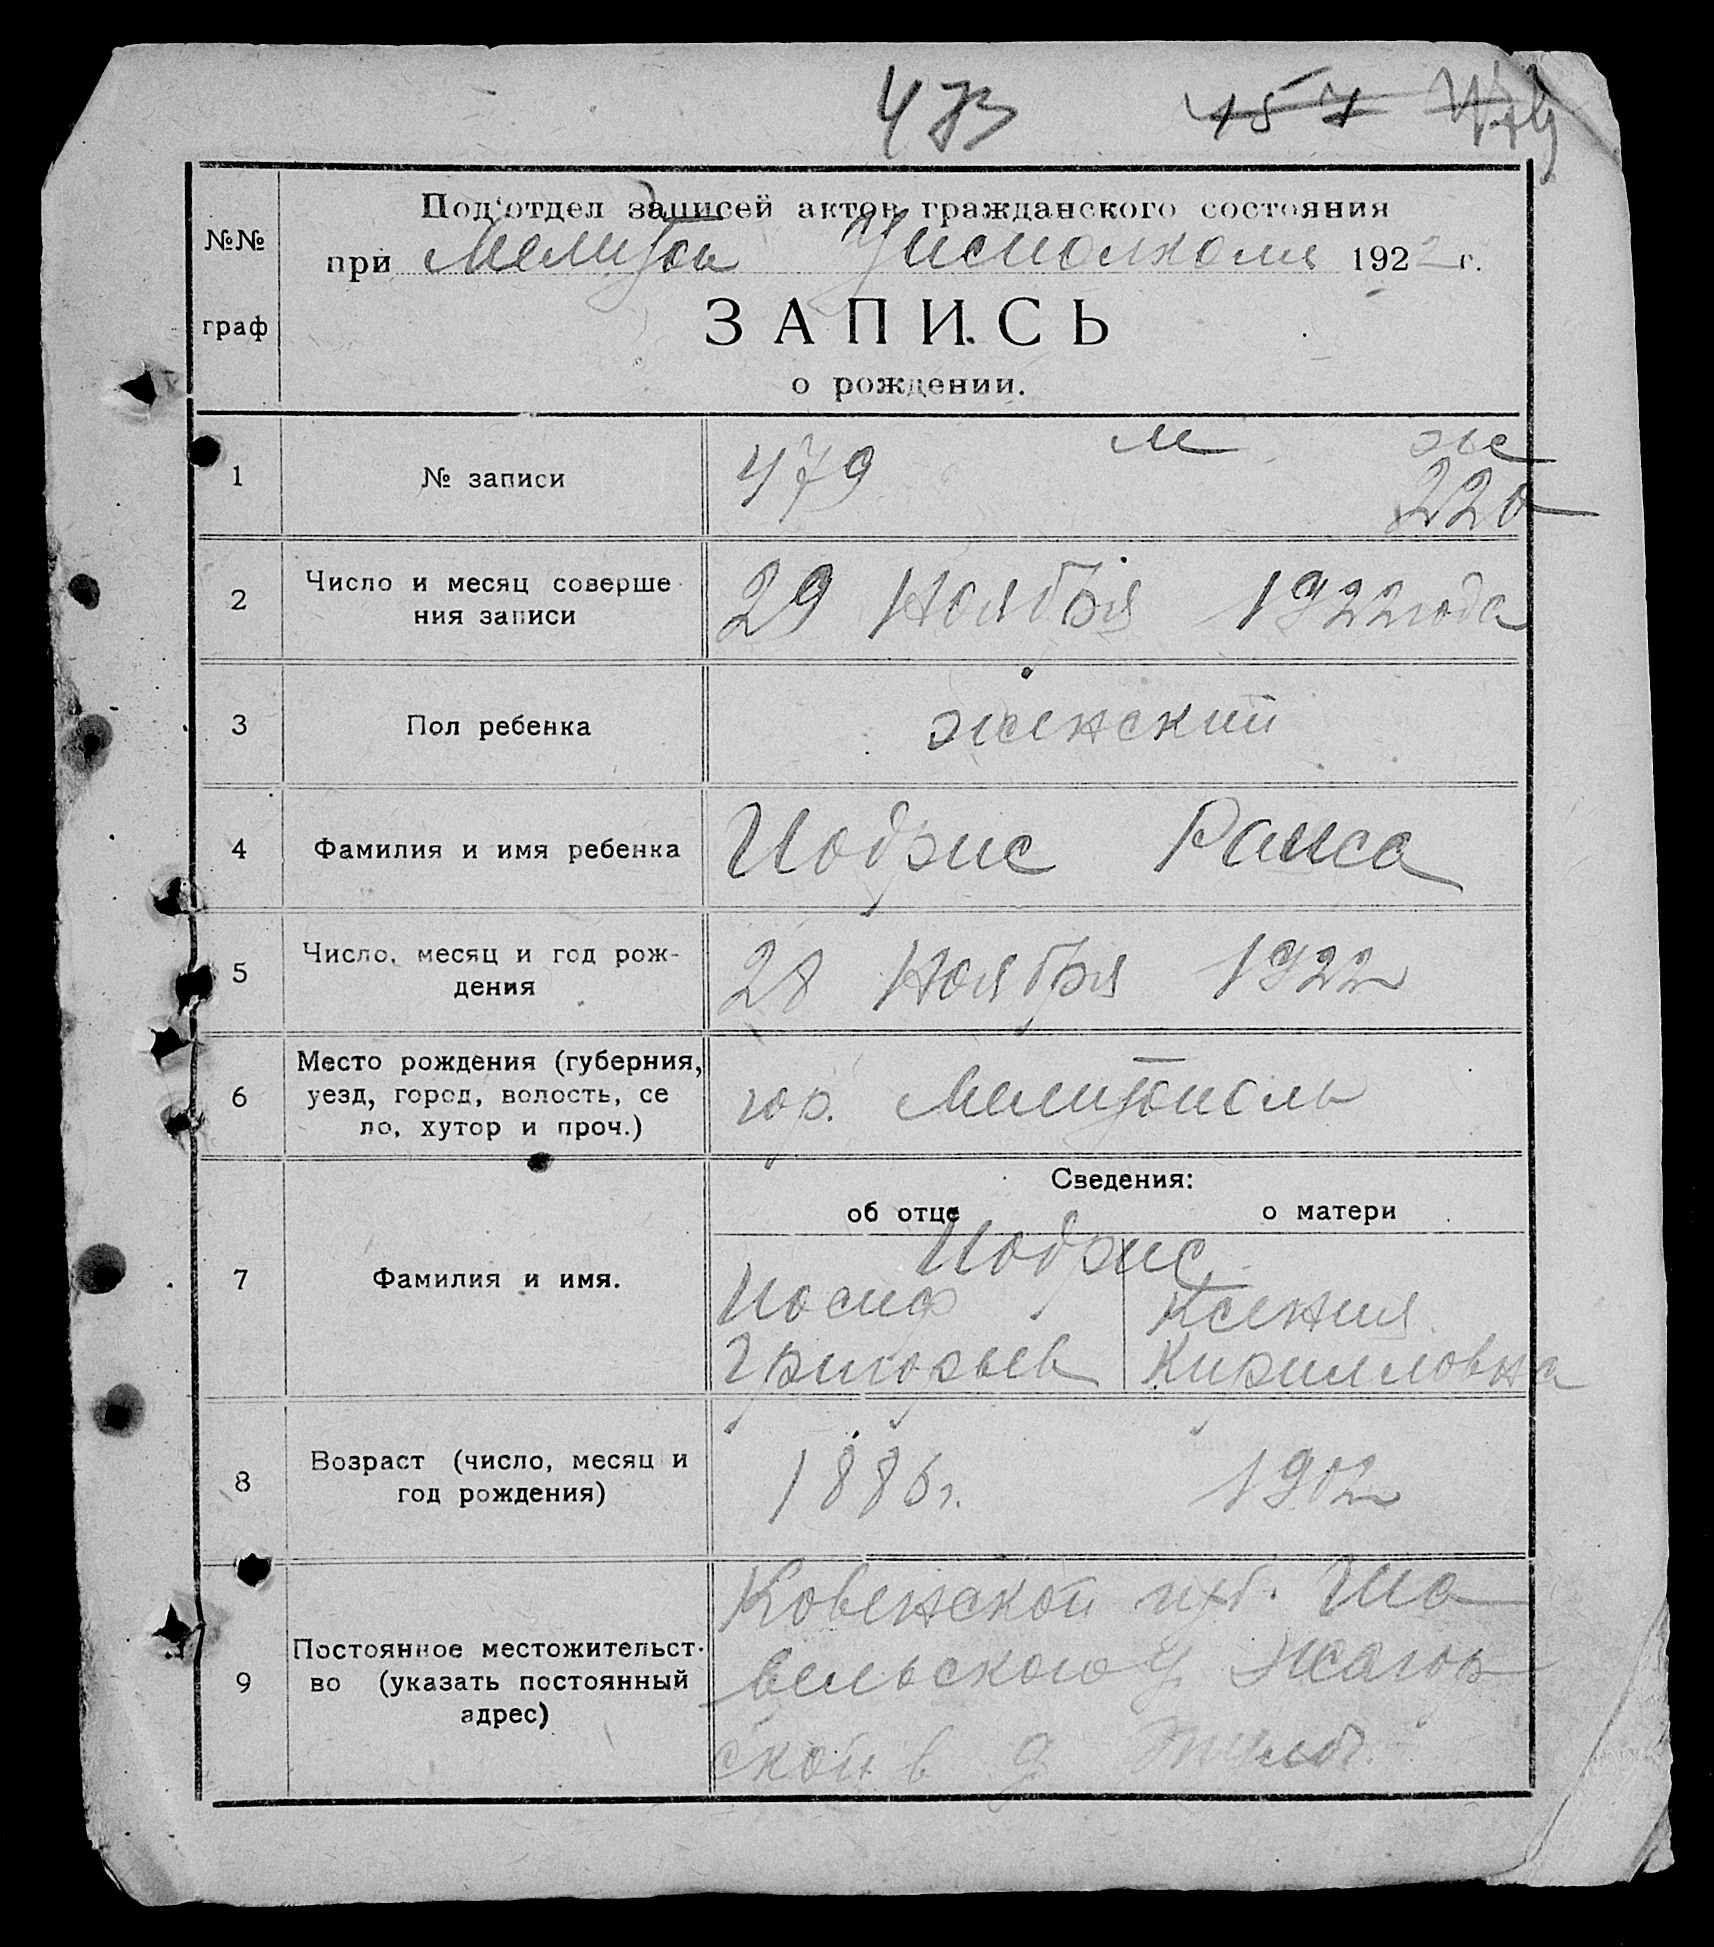 473 457
Под'отдел записей актов гражданского состояния
№№
при Мелитоп Уисполкоме 1922 г.
граф
ЗАПИСЬ
о рождении.
м ж
1 № записи 479 220
2 Число и месяц соверше
ния записи
29 Ноября 1922 года
3 Пол ребенка женский
4 Фамилия и имя ребенка Иодрис Раиса
5 Число, месяц и год рож-
дения
28 Ноября 1922
6 Место рождения (губерния,
уезд, город, волость, се
ло, хутор и проч.)
гор. Мелитополь
Сведения:
об отце о матери
7 Фамилия и имя.
Иодрис
Иосиф Ксения
Григорьев Кирилловна
8 Возраст (число, месяц и
год рождения)
1886 г. 1902
9 Постоянное местожительст-
во (указать постоянный
адрес)
Ковенской губ. Ша
вельского у Жагор
ской в д